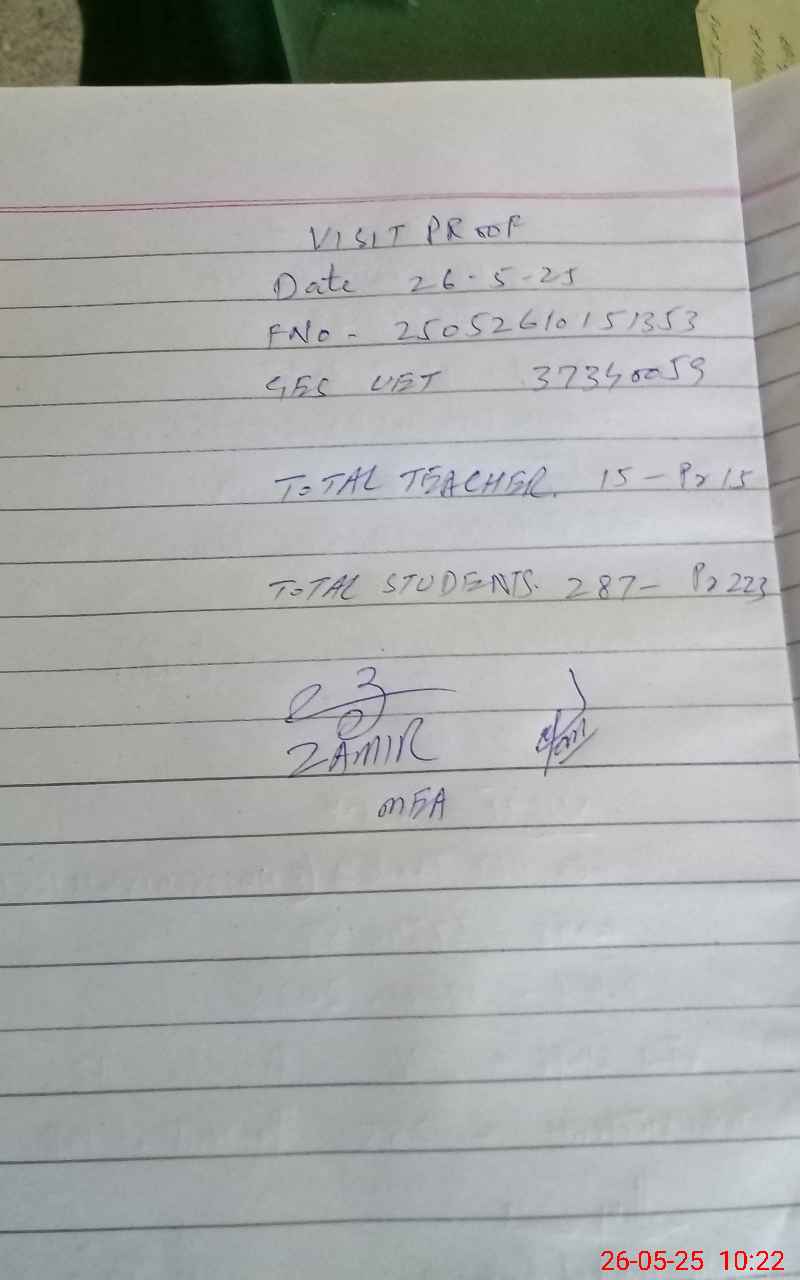 VISIT PROOF
Date 26-5-25
FNo - 25052610151353
GES VET 37340059
TOTAL TEACHER. 15 - Pr 15
TOTAL STUDENTS. 287 - Pr 223
ZAMIR
MEA
26-05-25 10:22